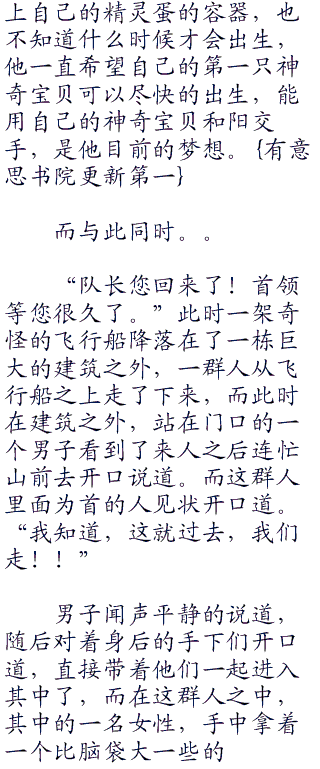 上自己的精灵蛋的容器，也
不知道什么时候才会出生，
他一直希望自己的第一只神
奇宝贝可以尽快的出生，能
用自己的神奇宝贝和阳交
手，是他目前的梦想。{有意
思书院更新第一}
而与此同时。。
“队长您回来了！首领
等您很久了。”此时一架奇
怪的飞行船降落在了一栋巨
大的建筑之外，一群人从飞
行船之上走了下来，而此时
在建筑之外，站在门口的一
个男子看到了来人之后连忙
山前去开口说道。而这群人
里面为首的人见状开口道。
“我知道，这就过去，我们
走！！”
男子闻声平静的说道，
随后对着身后的手下们开口
道，直接带着他们一起进入
其中了，而在这群人之中，
其中的一名女性，手中拿着
一个比脑袋大一些的